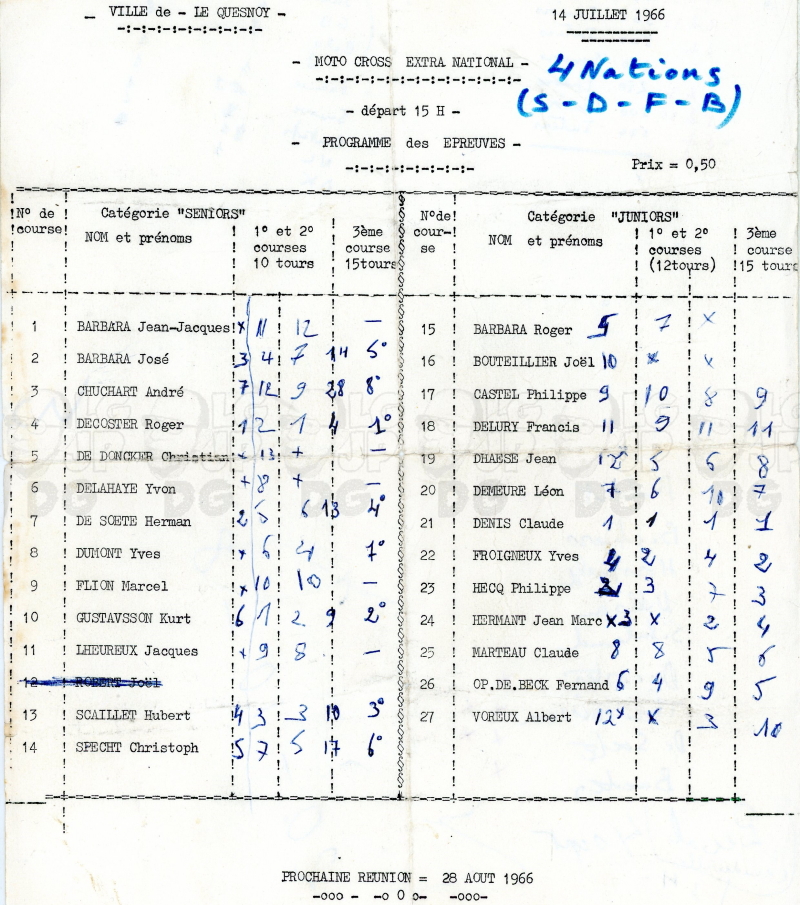 _ VILLE de - LE QUESNOY -
14 JUILLET 1966
- MOTO CROSS EXTRA NATIONAL -
4 Nations
(S - D - F - B)
- départ 15 H -
- PROGRAMME des EPREUVES -
Prix = 0,50
N° de course ! Catégorie "SENIORS" NOM et prénoms ! 1° et 2° courses 10 tours ! 3ème course 15tours
N° de cour-se ! Catégorie "JUNIORS" NOM et prénoms ! 1° et 2° courses (12tours) ! 3ème course 15 tours
1 ! BARBARA Jean-Jacques ! x 11 12 —
2 ! BARBARA José 3 4 7 14 5°
3 ! CHUCHART André 7 12 9 28 8°
4 ! DECOSTER Roger 1 2 1 4 1°
5 ! DE DONCKER Christian + 13 + —
6 ! DELAHAYE Yvon + 8 + —
7 ! DE SOETE Herman 2 5 6 13 4°
8 ! DUMONT Yves x 6 4 7°
9 ! FLION Marcel x 10 10 —
10 ! GUSTAVSSON Kurt 6 1 2 9 2°
11 ! LHEUREUX Jacques + 9 8 —
12 ! ROBERT Joël
13 ! SCAILLET Hubert 4 3 3 10 3°
14 ! SPECHT Christoph 5 7 5 17 6°
15 ! BARBARA Roger 5 7 x
16 ! BOUTEILLIER Joël 10 x x
17 ! CASTEL Philippe 9 10 8 9
18 ! DELURY Francois 11 9 11 11
19 ! DHAESE Jean 12 5 6 8
20 ! DEMEURE Léon 7 6 10 7
21 ! DENIS Claude 1 1 1 1
22 ! FROIGNEUX Yves 4 2 4 2
23 ! HECQ Philippe 3 7 3
24 ! HERMANT Jean Marc x3 x 2 4
25 ! MARTEAU Claude 8 8 5 6
26 ! OP.DE.BECK Fernand 6 4 9 5
27 ! VOREUX Albert 12x x 3 10
PROCHAINE REUNION = 28 AOUT 1966
-ooo - -o O o- -ooo-